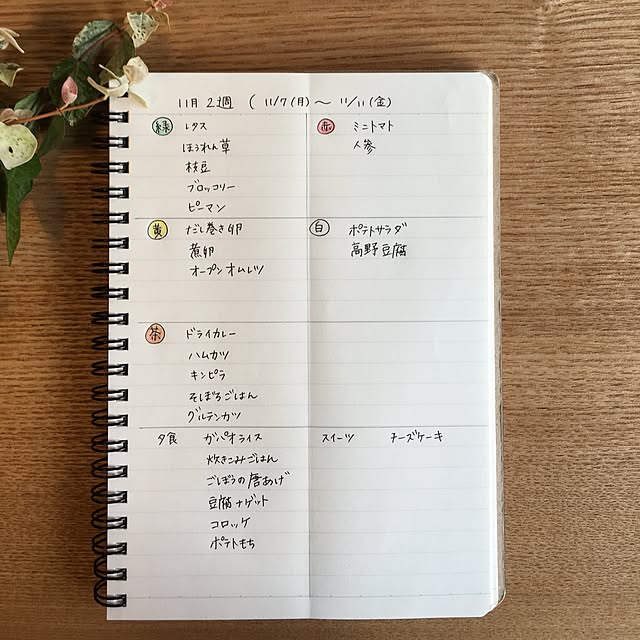 11月 2週 ( 11/7(月) ～ 11/11(金)
緑 レタス
ほうれん草
枝豆
ブロッコリー
ピーマン
赤 ミニトマト
人参
黄 だし巻き卵
煮卵
オープンオムレツ
白 ポテトサラダ
高野豆腐
茶 ドライカレー
ハムカツ
キンピラ
そぼろごはん
グルテンカツ
夕食 ガパオライス
炊きこみごはん
ごぼうの唐あげ
豆腐ナゲット
コロッケ
ポテトもち
スイーツ チーズケーキ